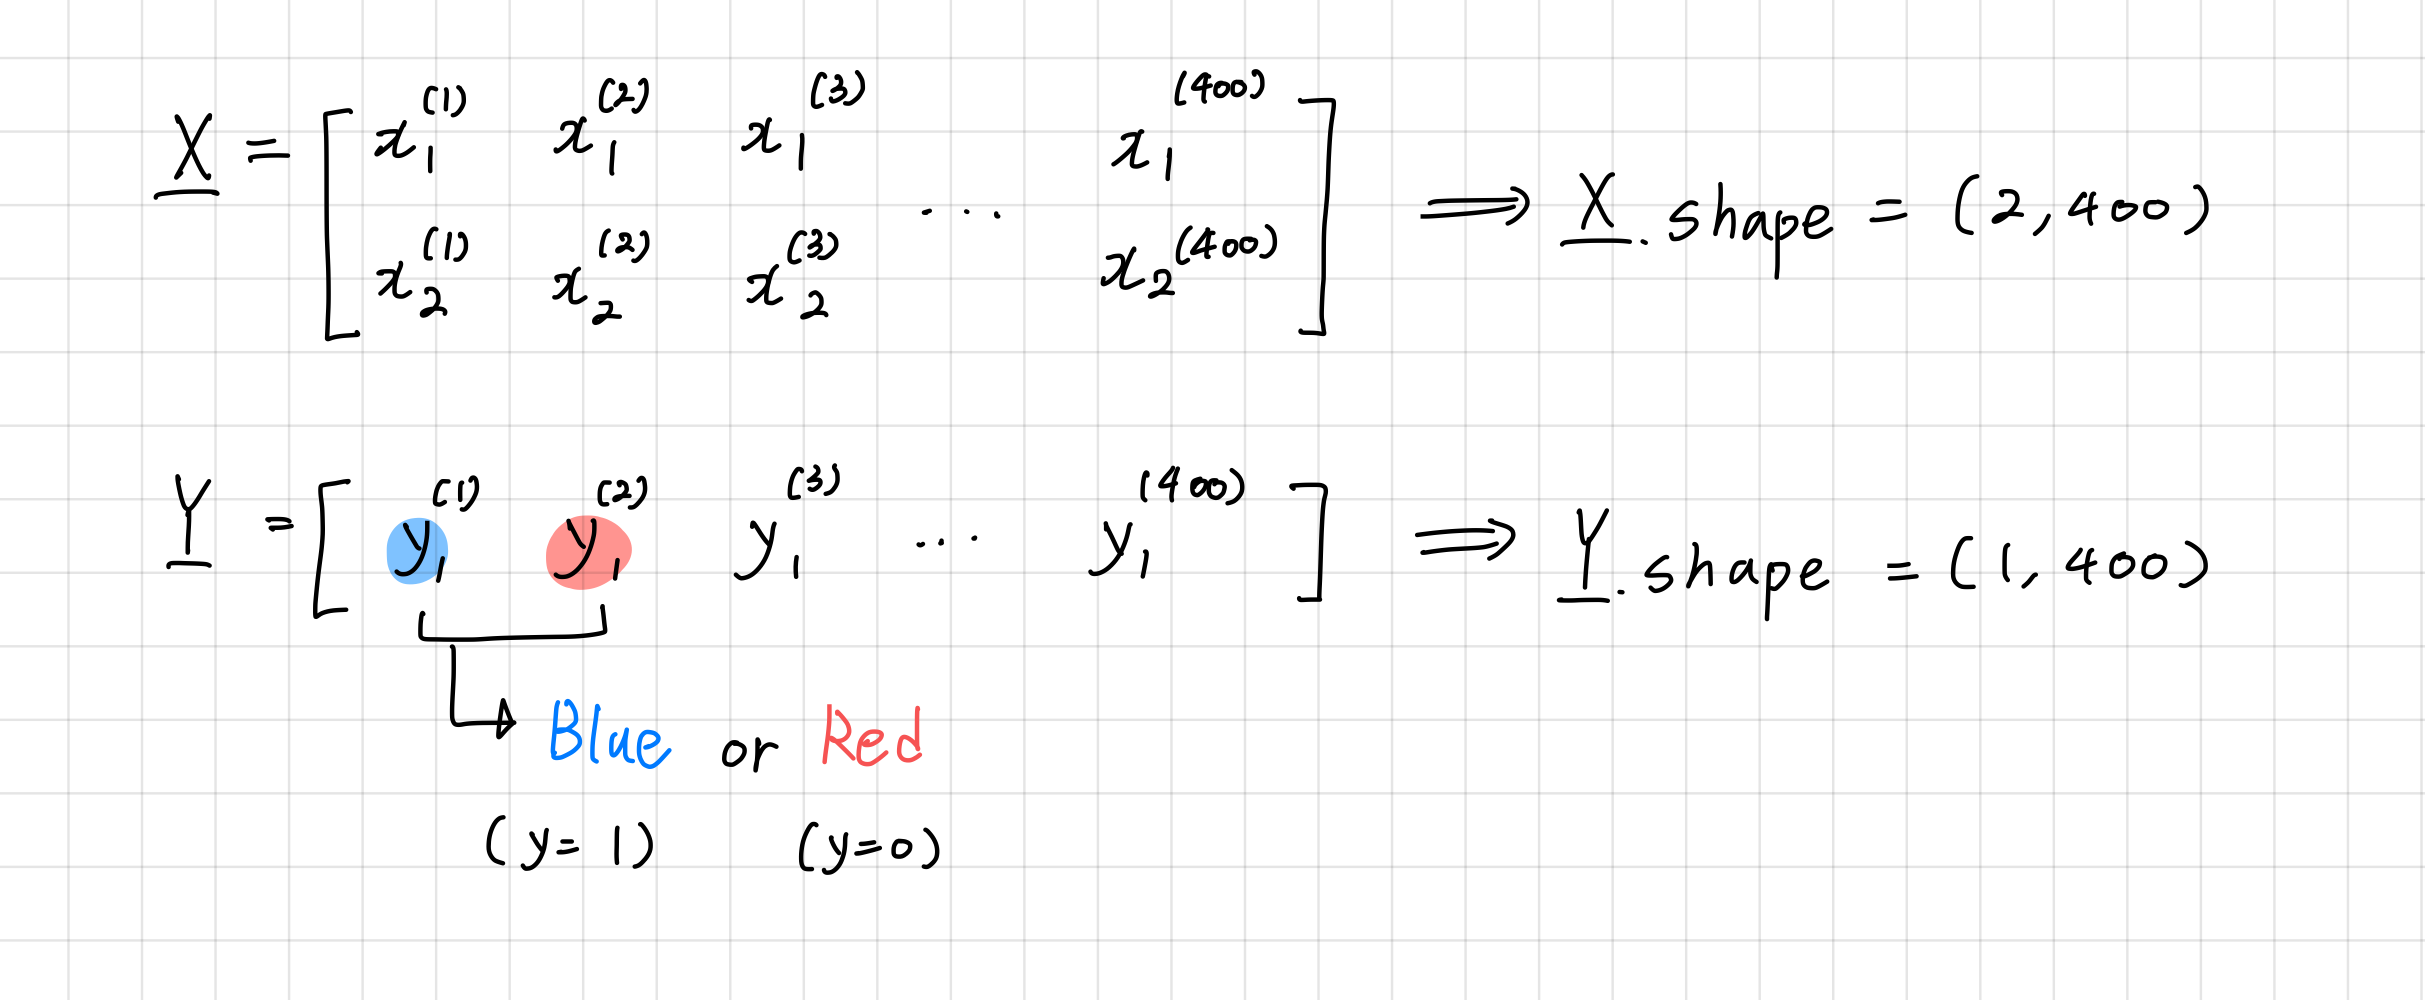 X = [ x₁⁽¹⁾ x₁⁽²⁾ x₁⁽³⁾ ... x₁⁽⁴⁰⁰⁾
x₂⁽¹⁾ x₂⁽²⁾ x₂⁽³⁾ x₂⁽⁴⁰⁰⁾ ] ⟹ X.shape = (2, 400)
Y = [ y₁⁽¹⁾ y₁⁽²⁾ y₁⁽³⁾ ... y₁⁽⁴⁰⁰⁾ ] ⟹ Y.shape = (1, 400)
Blue or Red
(y=1) (y=0)